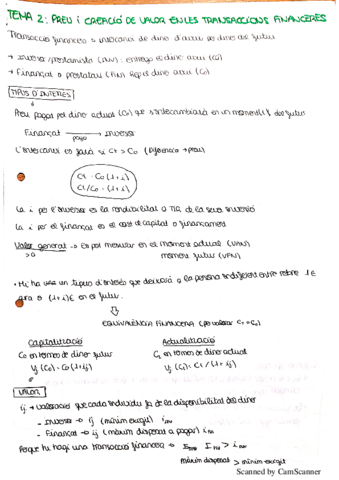 TEMA 2: PREU i CREACIÓ DE VALOR EN LES TRANSACCIONS FINANCERES
Transacció financera = intercanvi de diners d'avui per diners del futur
→ Inversor/prestamista : entrega els diners avui (C0)
→ Finançat o prestatari : Rep els diners avui (C0)
TIPUS D'INTERÈS
Preu pagat pel diner actual (C0) que s'intercanviarà en un moment del futur
Finançat → Inversor
paga
L'intercanvi es farà si Ct > C0 (Diferència = preu)
Ct = C0 (1+i)
Ct/C0 = (1+i)
La i per l'inversor es la rendibilitat o TIR de la seva inversió
La i per el finançat es el cost de capital o finançament
Valor generat → Es pot mesurar en el moment actual (VAN)
>0 moment futur (VFN)
• Hi ha una i tipus d'interès que deixarà a la persona indiferent entre rebre 1€
ara o (1+i)€ en el futur.
EQUIVALÈNCIA FINANCERA
Capitalització Actualització
C0 en termes de diner futur Ct en termes de diner actual
Vj (C0) = C0 (1+ij) Vj (Ct) = Ct / (1+ij)
VALOR
ij → Valoració que cada individu fa de la disponibilitat del diner
- Inversor → ij (mínim exigit)
- Finançat → ij (màxim disposat a pagar)
Perque hi hagi una transacció financera →
màxim disposat > mínim exigit
Scanned by CamScanner